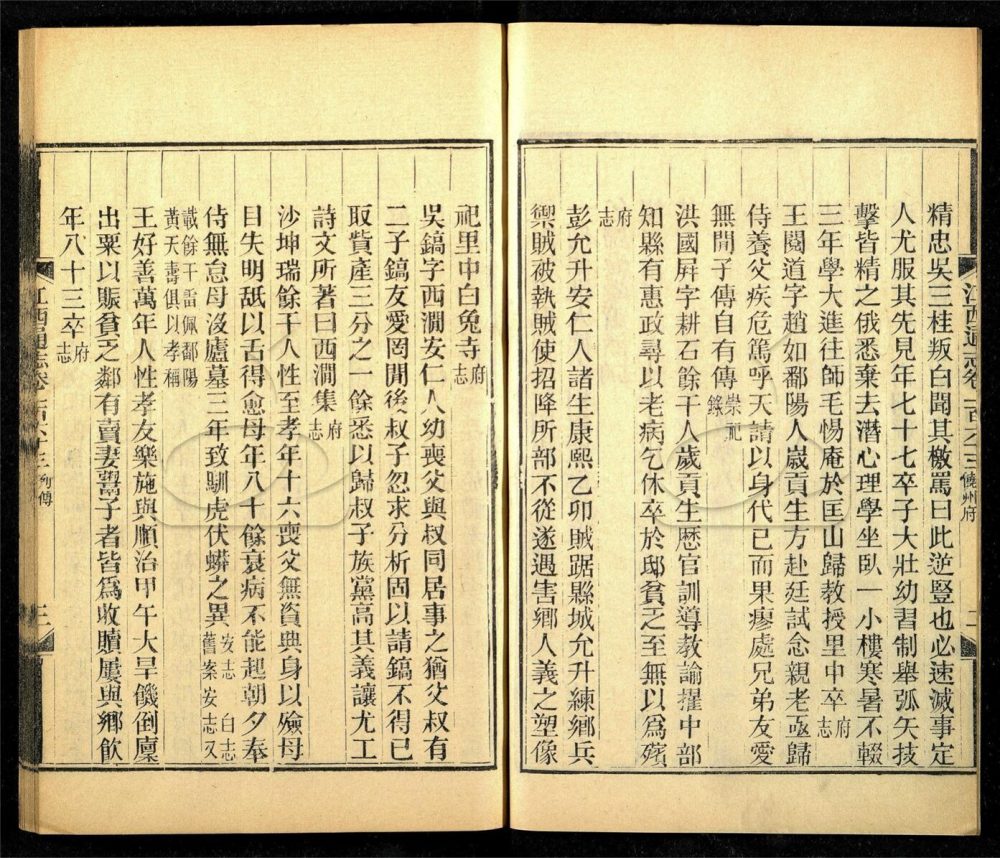 江西通志卷一百六十三 饒州府 二
精忠吳三桂叛白聞其檄罵曰此逆豎也必速滅事定
人尤服其先見年七十七卒子大壯幼習制舉弧矢技
擊皆精之俄悉棄去潛心理學坐臥一小樓寒暑不輟
三年學大進往師毛惕庵於匡山歸教授里中卒府志
王閱道字趙如鄱陽人歲貢生方赴廷試念親老亟歸
侍養父疾危篤呼天請以身代已而果瘳處兄弟友愛
無閒子傳自有傳崇祀錄
洪國屏字耕石餘干人歲貢生歷官訓導教諭擢中部
知縣有惠政尋以老病乞休卒於邸貧乏至無以爲殯
府志
彭允升安仁人諸生康熙乙卯賊踞縣城允升練鄉兵
禦賊被執賊使招降所部不從遂遇害鄉人義之塑像
祀里中白兔寺府志
吳鎬字西澗安仁人幼喪父與叔同居事之猶父叔有
二子鎬友愛罔閒後叔子忽求分析固以請鎬不得已
取貲產三分之一餘悉以歸叔子族黨高其義讓尤工
詩文所著曰西澗集府志
沙坤瑞餘干人性至孝年十六喪父無資與身以殮母
目失明舐以舌得愈母年八十餘衰病不能起朝夕奉
侍無怠母沒廬墓三年致馴虎伏蟒之異安志 白志 舊案安志又
載餘干雷佩鄱陽黃天壽俱以孝稱
王好善萬年人性孝友樂施與順治甲午大旱饑倒廩
出粟以賑貧乏鄰有賣妻鬻子者皆爲收贖屢與鄉飲
年八十三卒府志
江西通志卷一百六十三 列傳 三